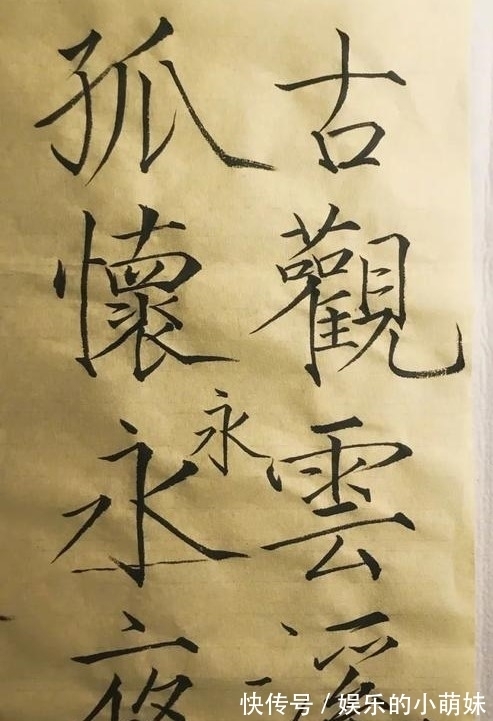 古觀雲溪
永
孤懷永夜
快传号/娱乐的小萌妹